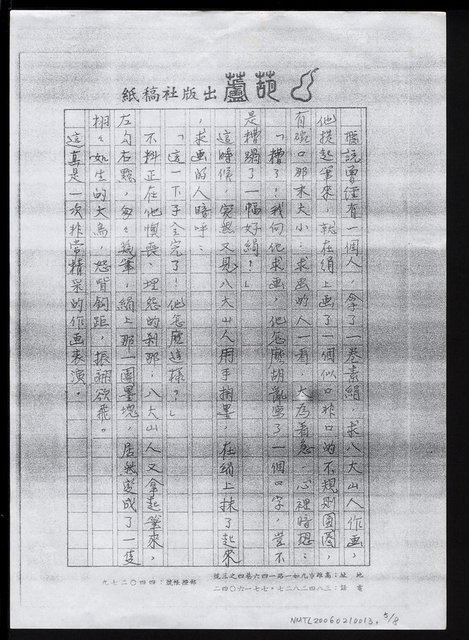 葫蘆出版社稿紙
據說曾經有一個人，拿了一卷素絹，求八大山人作画，
他提起筆來，就在絹上画了一個似口非口的不規則圓圈，
有碗口那末大小：求画的人一看，大為着急，心裡暗想：
「糟了！我向他求画，他怎麼胡亂画了一個口字，豈不
是糟蹋了一幅好絹！」
這時候，突然又見八大山人用手捎墨，在絹上抹了起來
，求画的人暗呼：
「這一下子全完了！他怎麼這樣？」
不料正在他懊喪、埋怨的剎那，八大山人又拿起筆來，
左勾右點，匆匆幾筆，絹上那一團墨塊，居然變成了一隻
栩々如生的大鳥，怒背鈎距，振翮欲飛。
這真是一次非常精采的作画表演。
地址：高雄市九如一路一四六巷四之三號
電話：三八四二八二七．七七一六〇四二
郵撥帳號：四四〇二七九
NMTL20060210013. 5/8